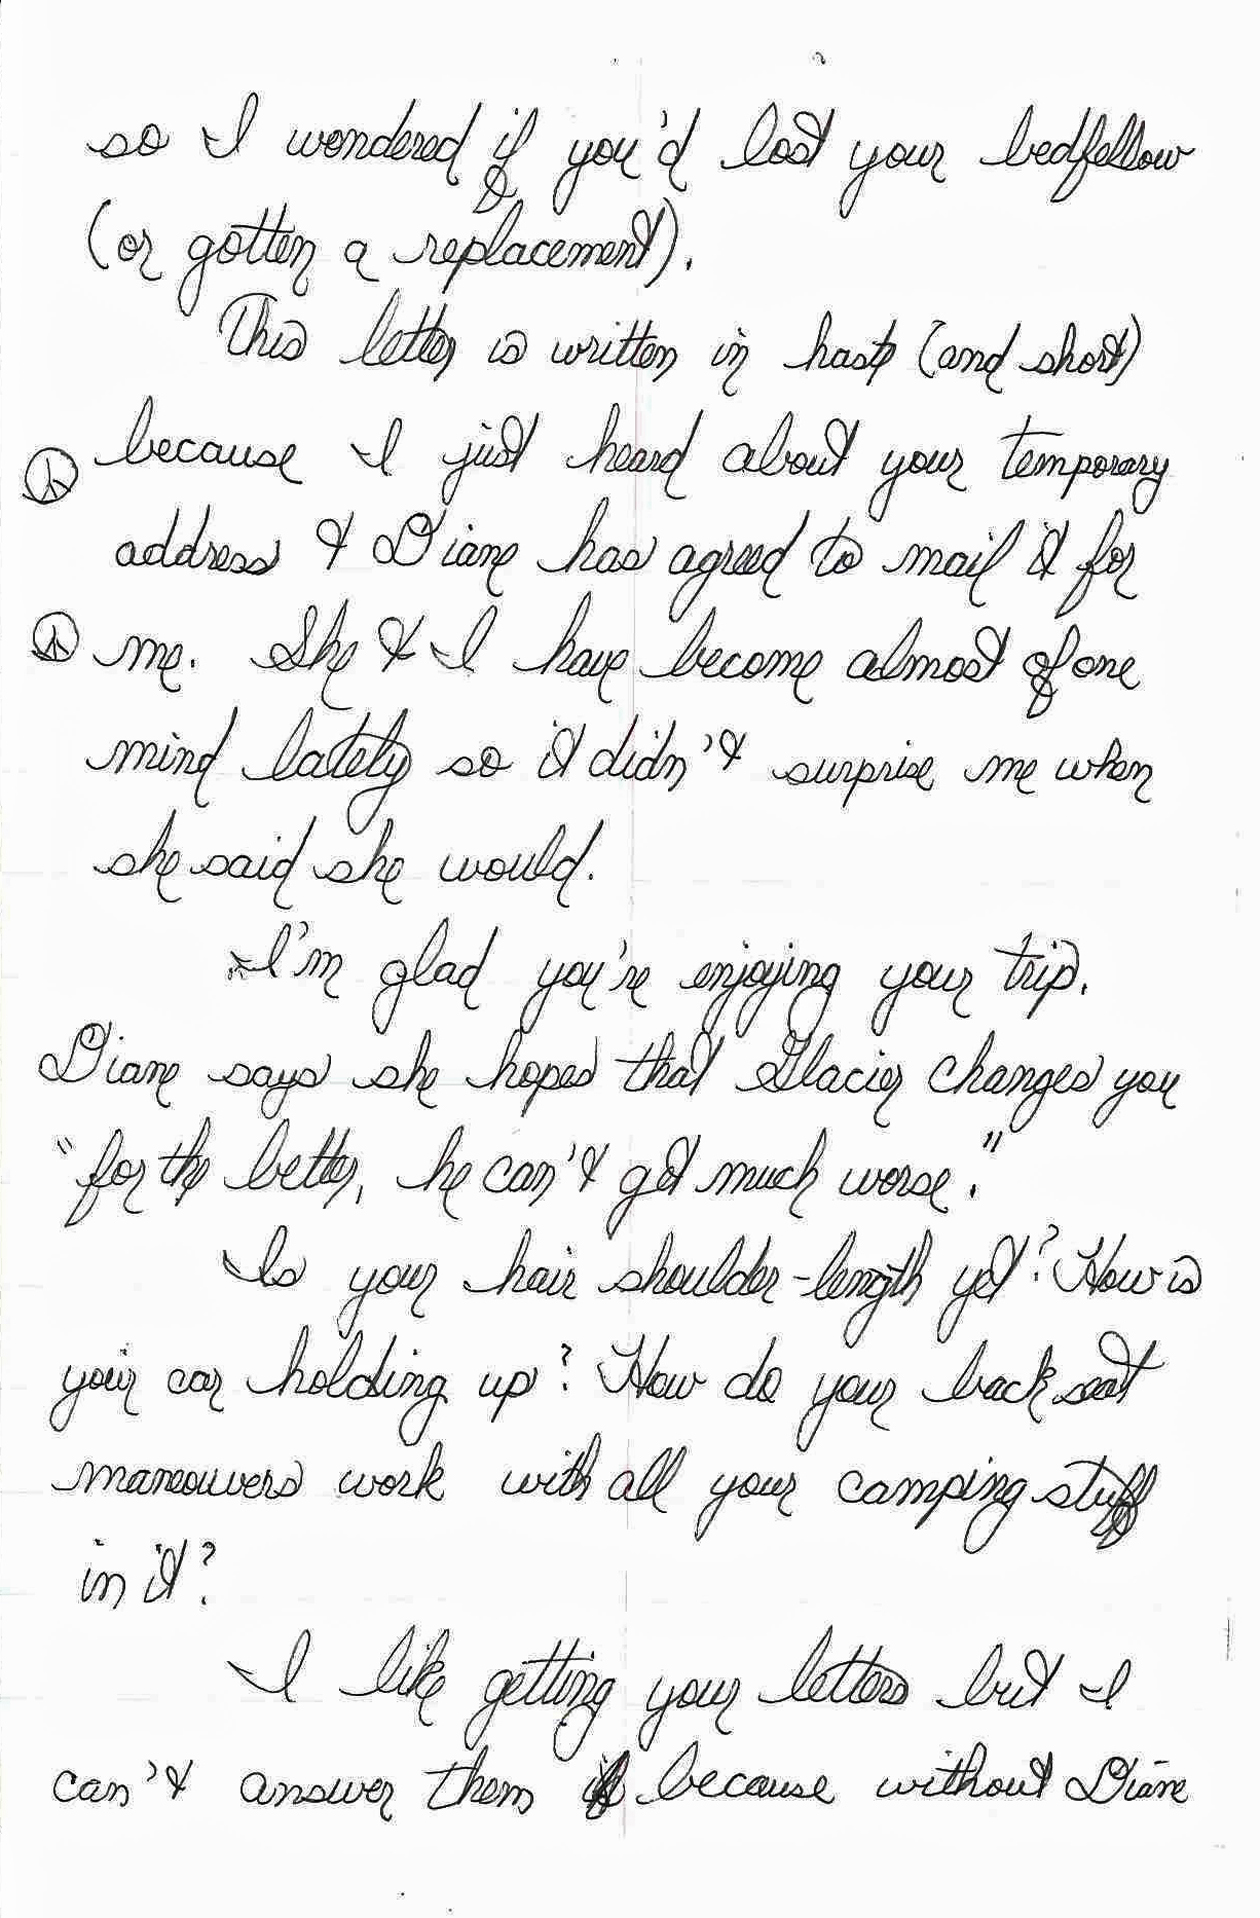 so I wondered if you'd lost your bedfellow
(or gotten a replacement).
This letter is written in haste (and short)
because I just heard about your temporary
address & Diane has agreed to mail it for
me. She & I have become almost of one
mind lately so it didn't surprise me when
she said she would.
I'm glad you're enjoying your trip.
Diane says she hopes that Glacier changes you
"for the better, he can't get much worse."
Is your hair shoulder-length yet? How is
your car holding up? How do your back seat
maneouvers work with all your camping stuff
in it?
I like getting your letters but I
can't answer them because without Diane